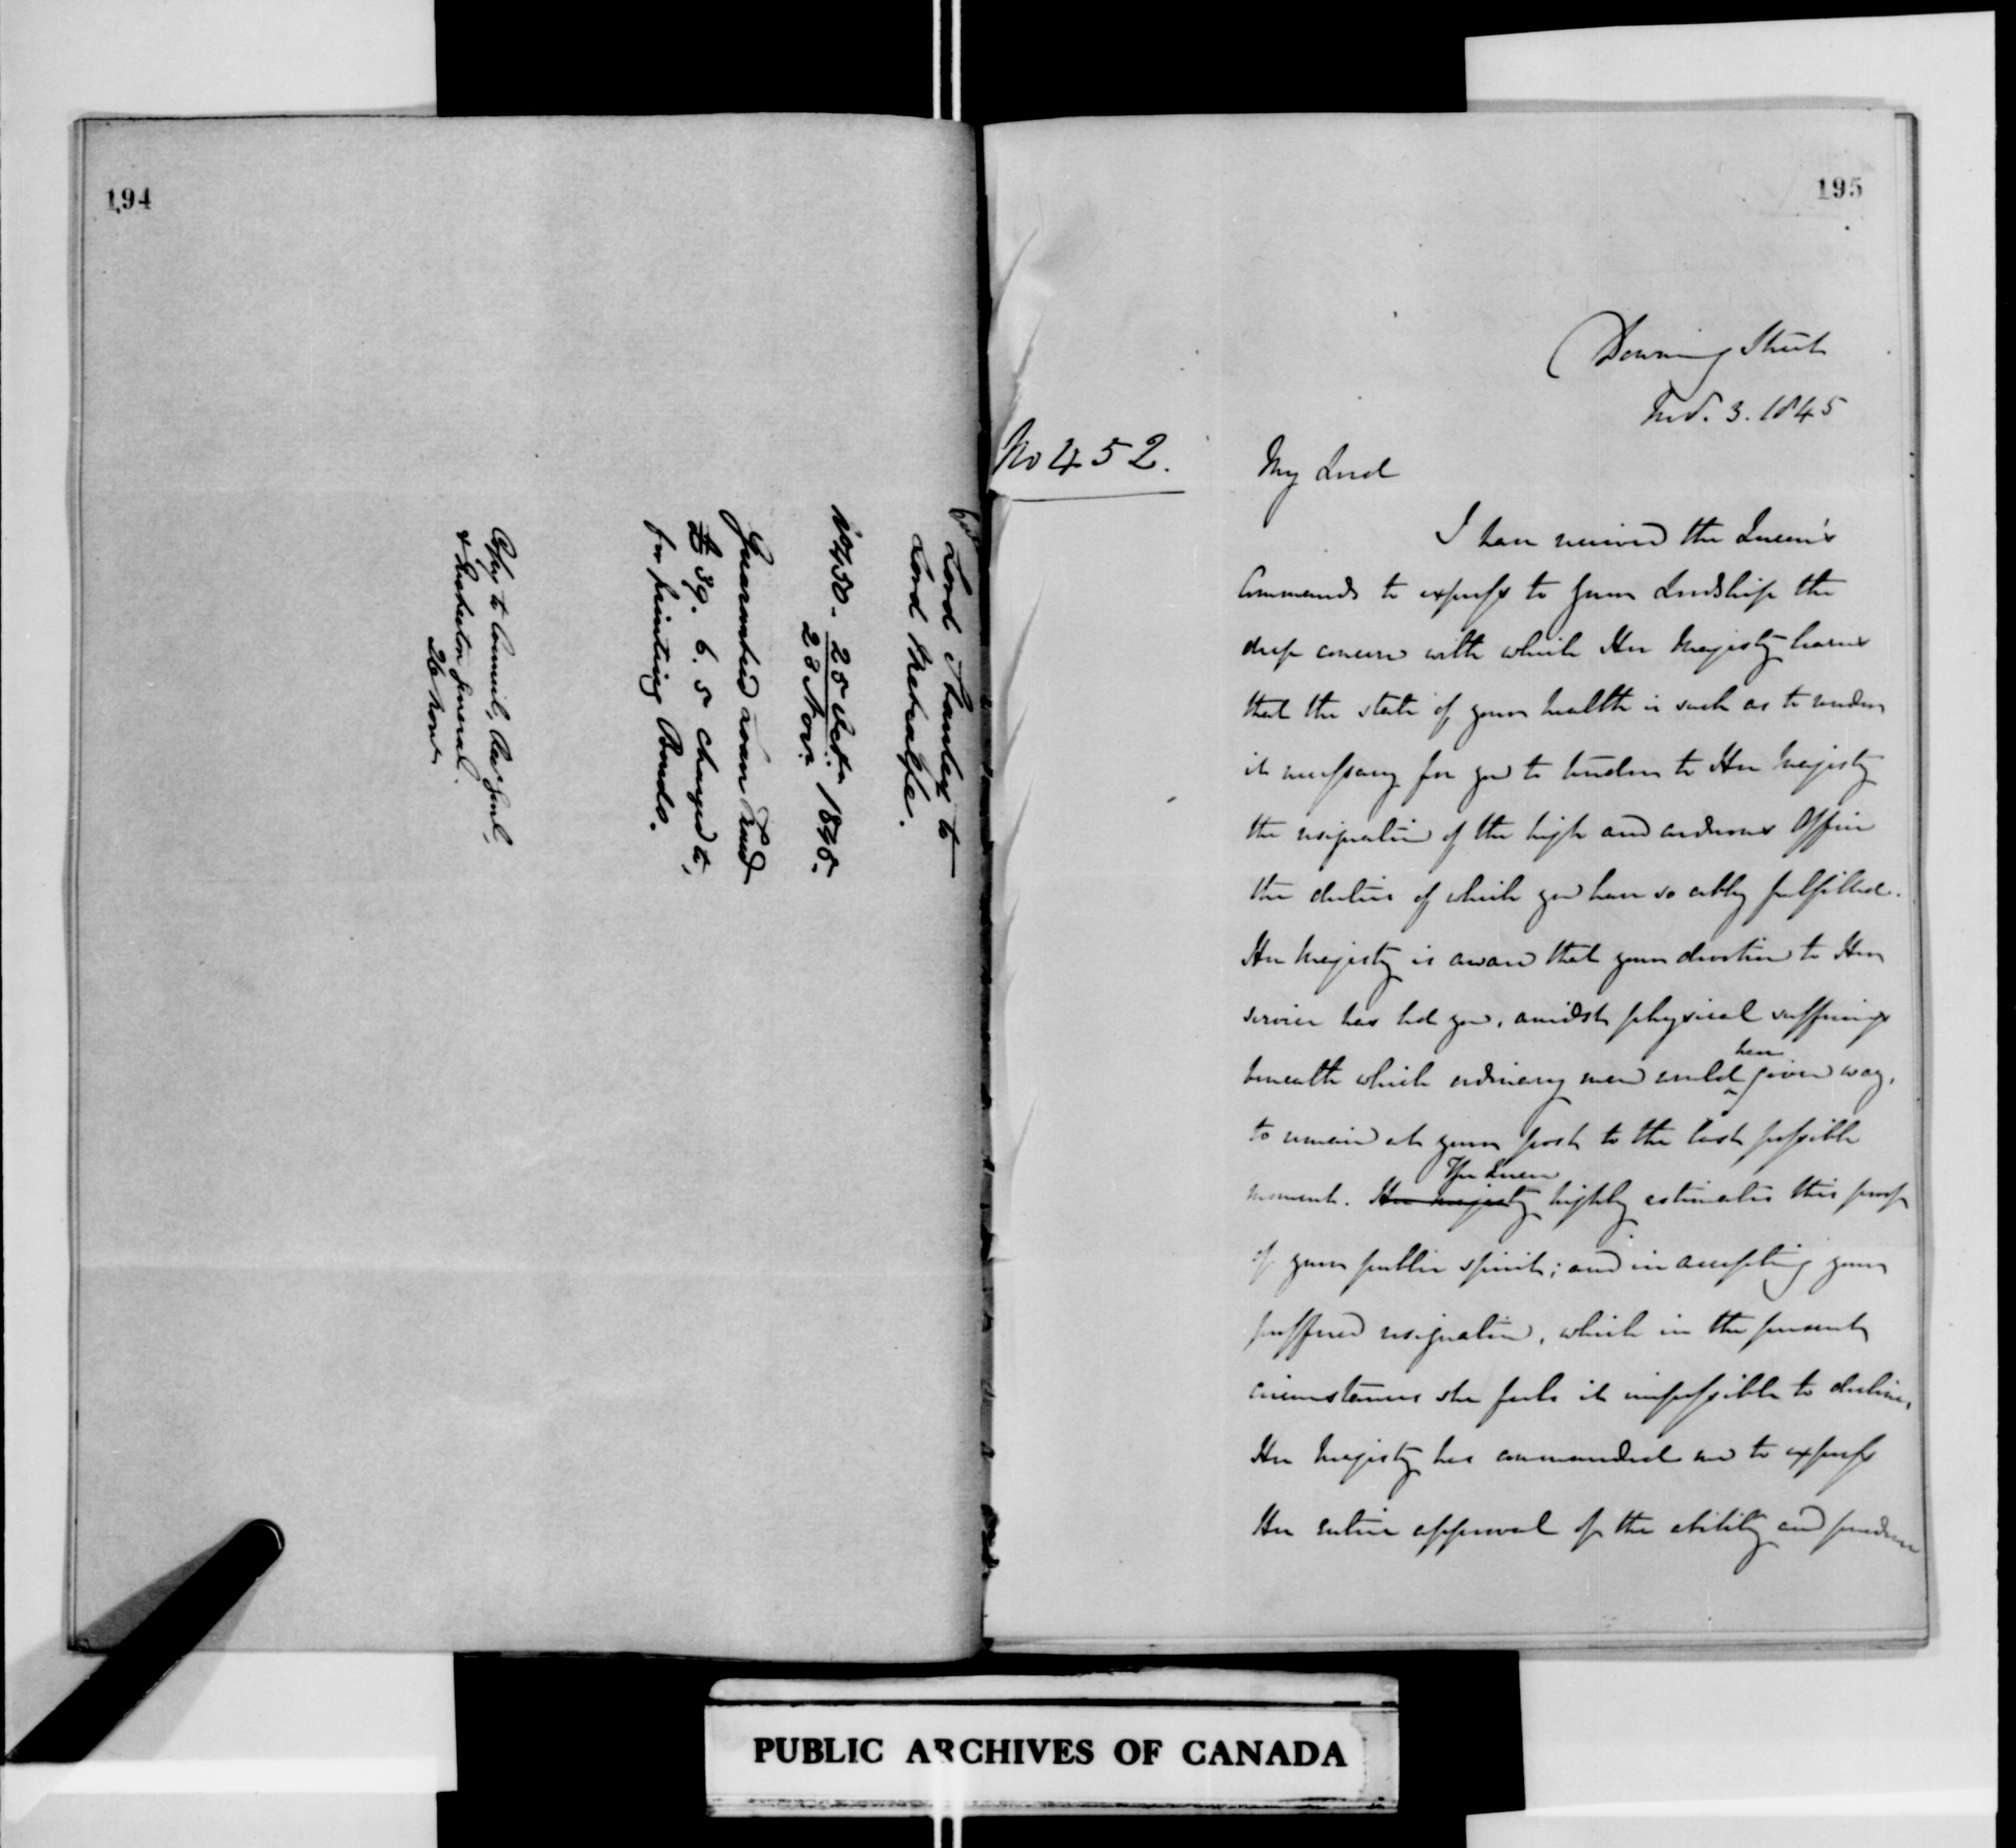 194
Lord Stanley to
Lord Metcalfe.
No 450. 25 Octr. 1845.
23 Novr.
Guaranteed Loan Fund
£ 39. 6. 5 charged to,
for printing Bonds.
Copy to Council,
& General.
26 Novr
195
Downing Street
Nov. 3. 1845
No 452.
My Lord
I have received the Queen's
Commands to express to your Lordship the
deep concern with which Her Majesty learns
that the state of your health is such as to render
it necessary for you to tender to Her Majesty
the resignation of the high and arduous Office
the duties of which you have so ably fulfilled.
Her Majesty is aware that your devotion to Her
service has led you, amidst physical sufferings
beneath which ordinary men would have given way,
to remain at your post to the last possible
moment. Her Majesty The Queen highly estimates this proof
of your public spirit; and in accepting your
proffered resignation, which in the present
circumstances she feels it impossible to decline,
Her Majesty has commanded me to express
Her entire approval of the ability and prudence
PUBLIC ARCHIVES OF CANADA